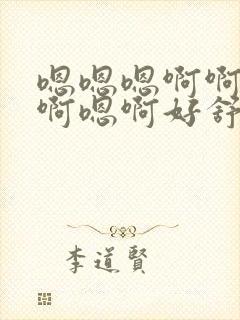 嗯嗯嗯啊啊
啊嗯啊好舒
李道賢